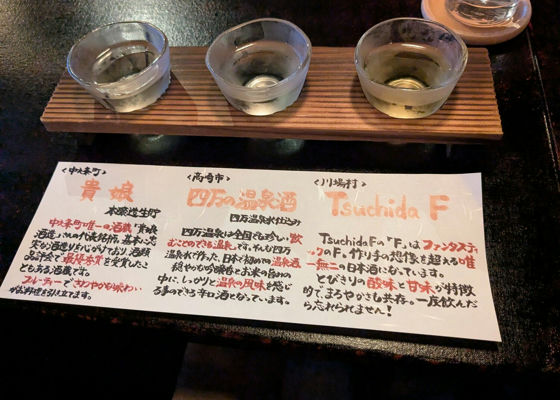 <中之条町>
貴娘
本醸造生貯
中之条町唯一の酒蔵「貴娘
酒造」さんの代表銘柄。基本に忠
実な酒造りを心がけており、酒類
品評会で最優秀賞を受賞したこ
ともある酒蔵です。
フルーティーでさわやかな味わい
がお料理を引き立てます。
<高崎市>
四万の温泉酒
四万温泉水仕込み
四万温泉は全国でも珍しい飲
むことのできる温泉です。そんな四万
温泉水で作った、日本で初めての温泉酒
穏やかな吟醸香とお米の旨みの
中に、しっかりと温泉の風味を感じ
る事のできる辛口酒となっています。
<川場村>
Tsuchida F
TsuchidaFの「F」はファンタスティ
ックのF。作り手の想像を超える唯
一無二の日本酒になっています。
とびきりの酸味と甘味が特徴
的で、まろやかさも共存。一度飲んだ
ら忘れられません!